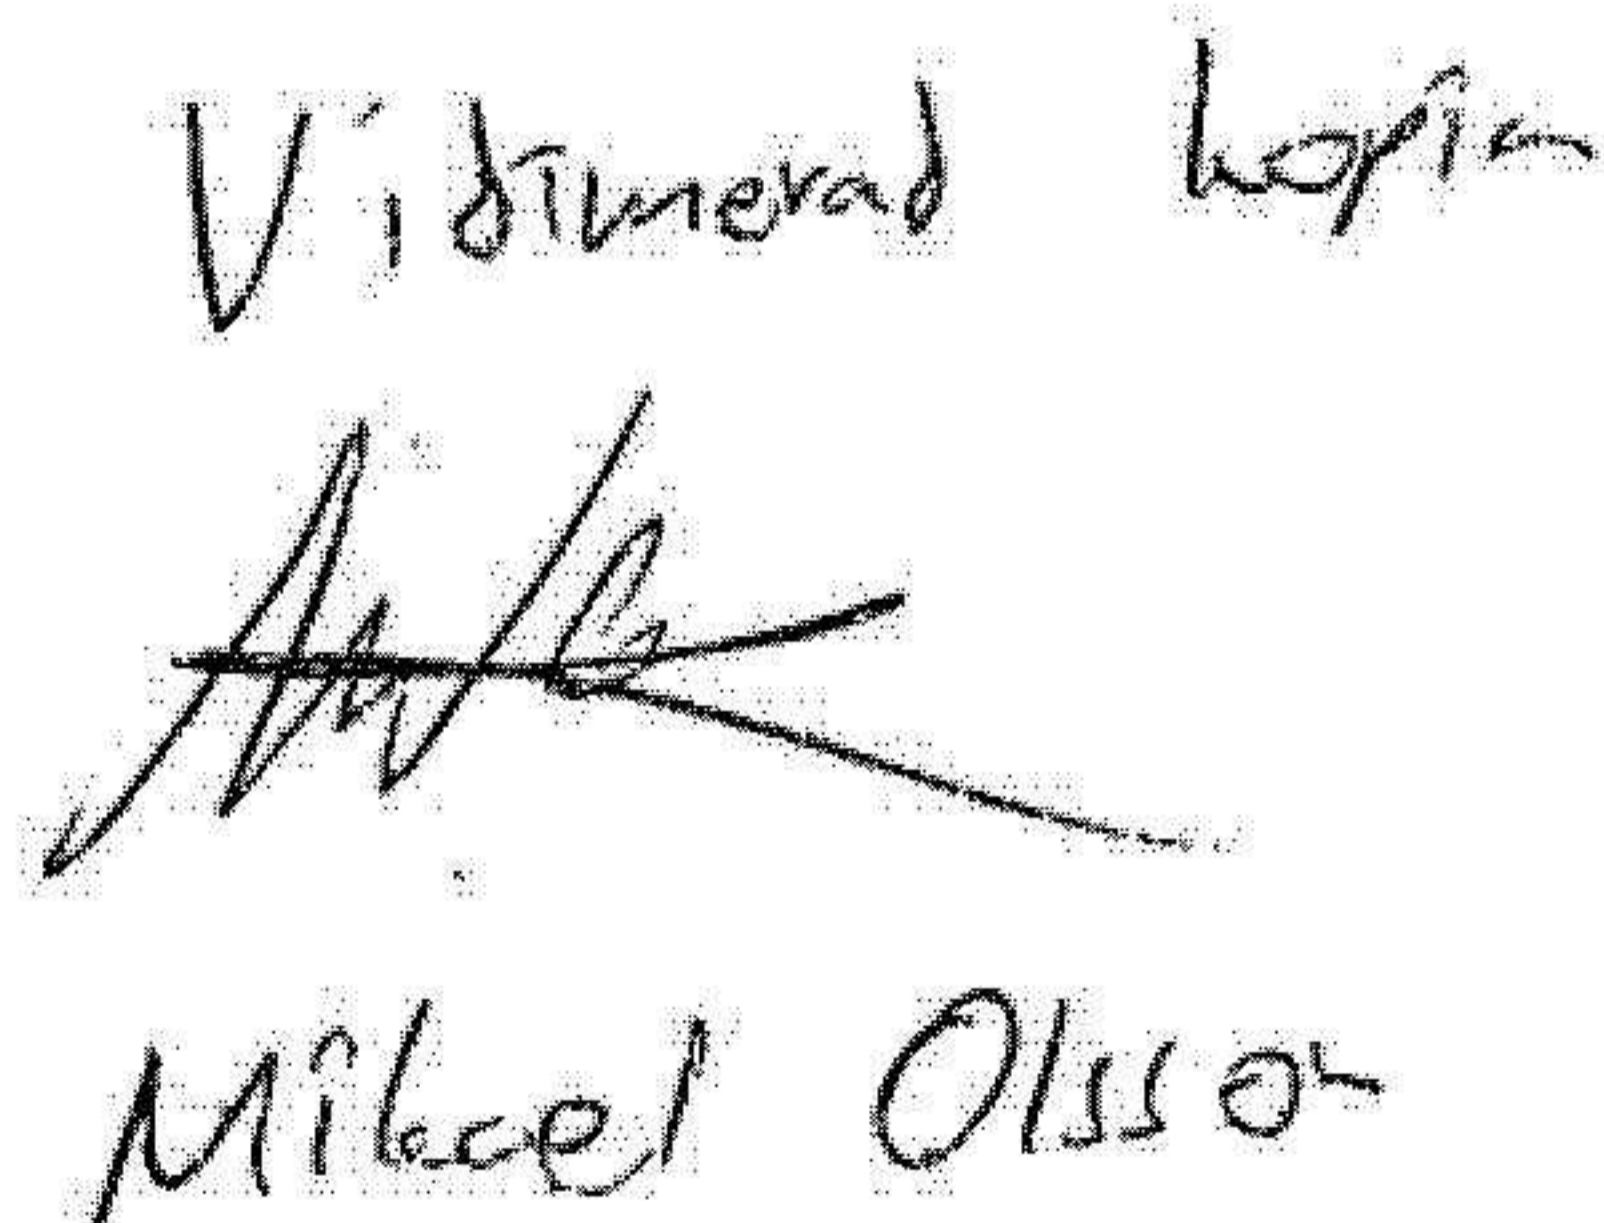 Vidimerad kopia
Mikael Olsson